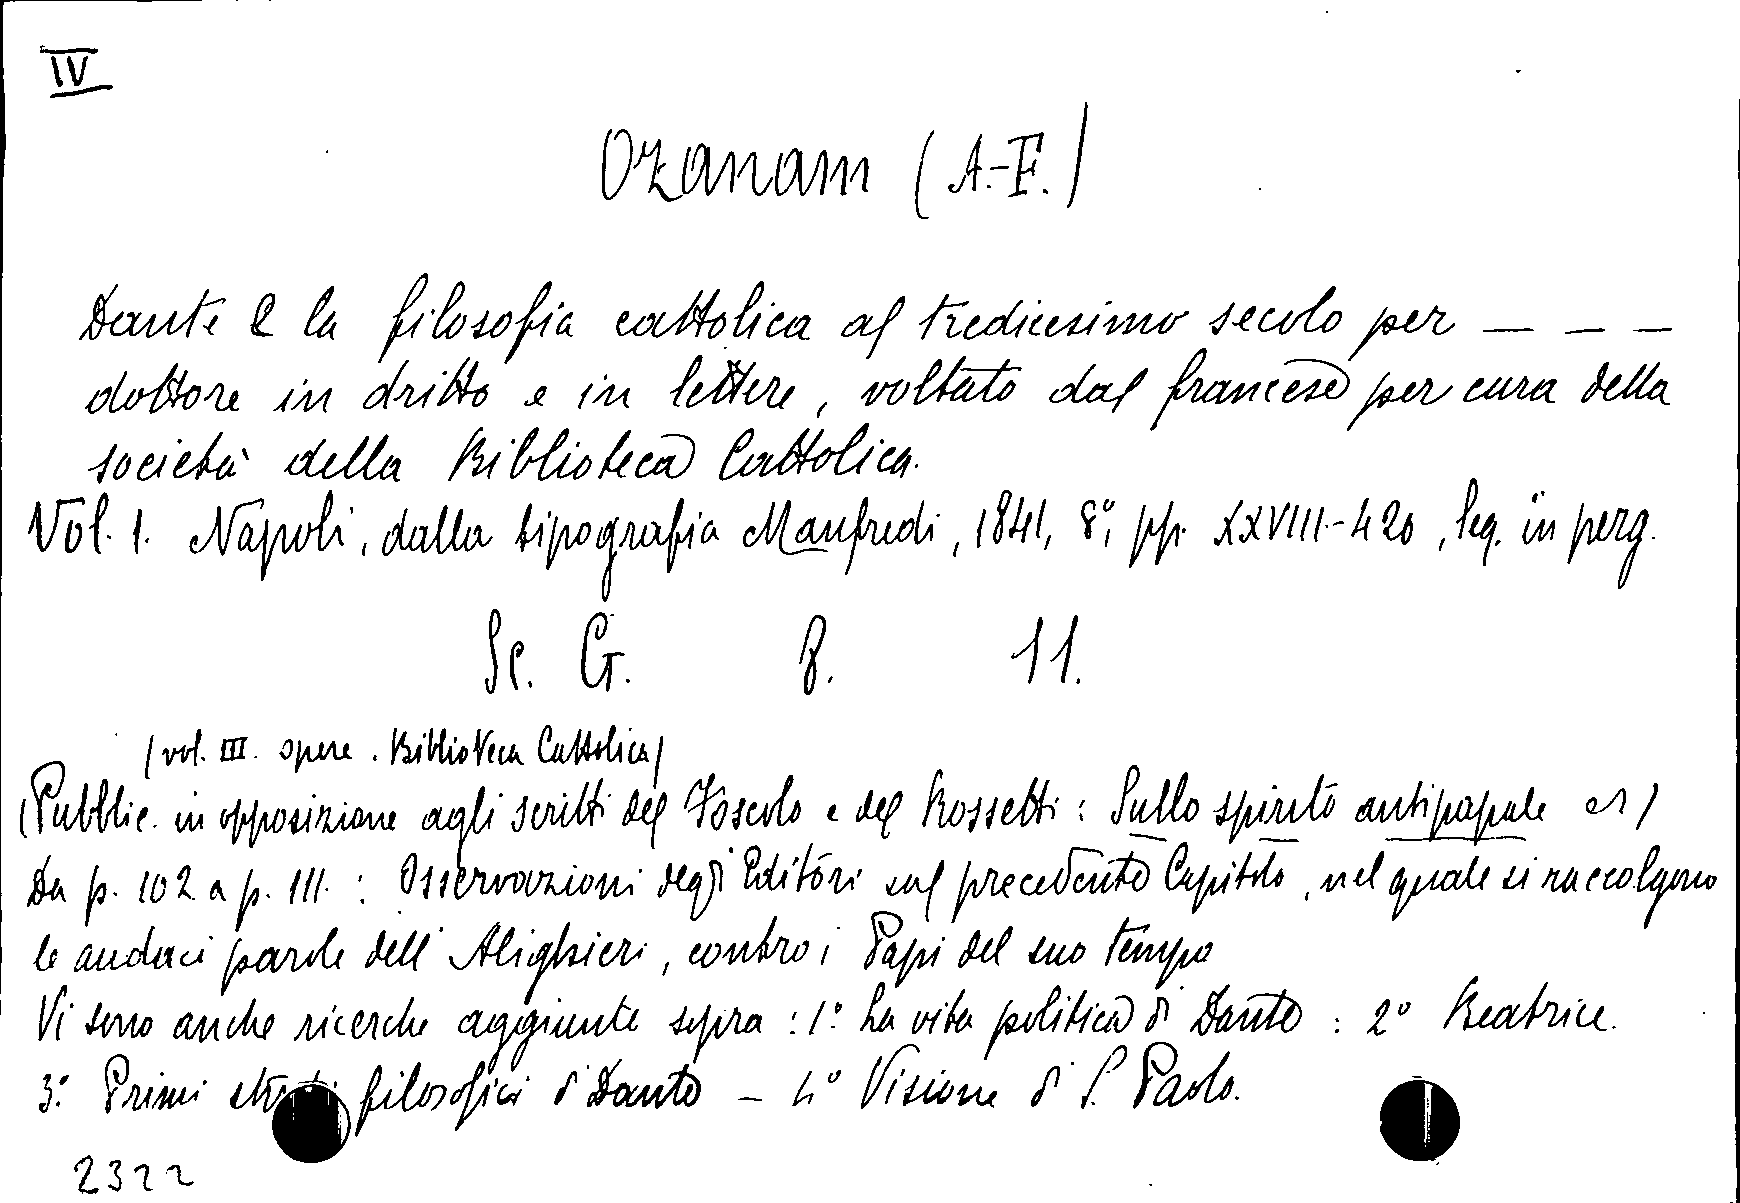 IV
Ozanam (A.-F.)
Dante e la filosofia cattolica al tredicesimo secolo per — — —
dottore in dritto e in lettere, voltato dal francese per cura della
società della Biblioteca Cattolica.
Vol. 1. Napoli, dalla tipografia Manfredi, 1841, 8°, pp. XXVIII-420, leg. in perg.
Sc. G. 8. 11.
(vol. III. opere. Biblioteca Cattolica)
(Pubblic. in opposizione agli scritti del Foscolo e del Rossetti: Sullo spirito antipapale
Da p. 102 a p. 111. : Osservazioni degli Editori sul precedente Capitolo, nel quale si raccolgono
le audaci parole dell'Alighieri, contro i Papi del suo tempo
Vi sono anche ricerche aggiunte sopra: 1° La vita politica di Dante: 2° Beatrice.
3° Primi studi filosofici di Dante – 4° Visione di S. Paolo.
2322